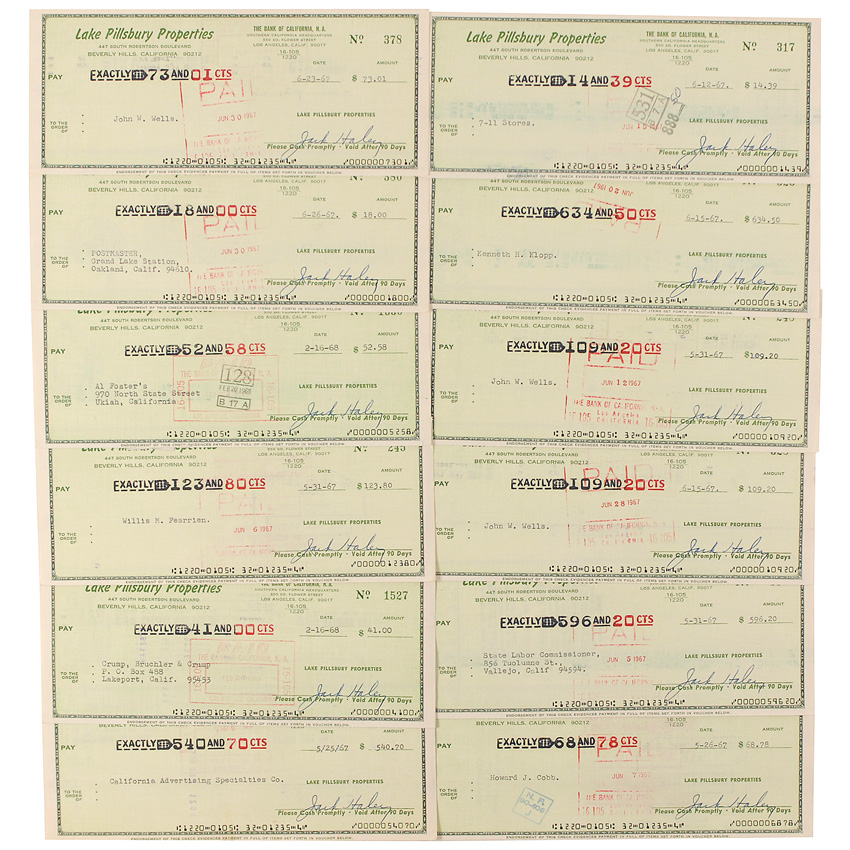 Lake Pillsbury Properties
447 SOUTH ROBERTSON BOULEVARD
BEVERLY HILLS, CALIFORNIA 90212
THE BANK OF CALIFORNIA, N. A.
SOUTHERN CALIFORNIA HEADQUARTERS
550 SO. FLOWER STREET
LOS ANGELES, CALIF. 90017
16-105
1220
No 378
DATE AMOUNT
PAY EXACTLY 73 AND 01 CTS 6-23-67 $ 73.01
PAID
JUN 30 1967
TO THE ORDER OF John W. Wells.
LAKE PILLSBURY PROPERTIES
Jack Haley
Please Cash Promptly · Void After 90 Days
1220 0105 32 01235 4 0000007301
Lake Pillsbury Properties
447 SOUTH ROBERTSON BOULEVARD
BEVERLY HILLS, CALIFORNIA 90212
THE BANK OF CALIFORNIA, N. A.
SOUTHERN CALIFORNIA HEADQUARTERS
550 SO. FLOWER STREET
LOS ANGELES, CALIF. 90017
16-105
1220
No 317
DATE AMOUNT
PAY EXACTLY 14 AND 39 CTS 6-12-67. $ 14.39
TO THE ORDER OF 7-11 Stores.
LAKE PILLSBURY PROPERTIES
Jack Haley
Please Cash Promptly · Void After 90 Days
1220 0105 32 01235 4 0000001439
447 SOUTH ROBERTSON BOULEVARD
BEVERLY HILLS, CALIFORNIA 90212
LOS ANGELES, CALIF. 90017
16-105
1220
DATE AMOUNT
PAY EXACTLY 18 AND 00 CTS 6-26-67. $ 18.00
PAID
JUN 30 1967
TO THE ORDER OF POSTMASTER,
Grand Lake Station,
Oakland, Calif. 94610.
LAKE PILLSBURY PROPERTIES
Jack Haley
Please Cash Promptly · Void After 90 Days
1220 0105 32 01235 4 0000001800
BEVERLY HILLS, CALIFORNIA 90212
16-105
1220
DATE AMOUNT
PAY EXACTLY 634 AND 50 CTS 6-15-67. $ 634.50
JUN 20 1967
TO THE ORDER OF Kenneth H. Klopp.
LAKE PILLSBURY PROPERTIES
Jack Haley
Please Cash Promptly · Void After 90 Days
1220 0105 32 01235 4 0000063450
Lake Pillsbury Properties
447 SOUTH ROBERTSON BOULEVARD
BEVERLY HILLS, CALIFORNIA 90212
LOS ANGELES, CALIF. 90017
16-105
1220
DATE AMOUNT
PAY EXACTLY 52 AND 58 CTS 2-16-68 $ 52.58
128
FEB 20 1968
B 17 A
TO THE ORDER OF Al Foster's
970 North State Street
Ukiah, California
LAKE PILLSBURY PROPERTIES
Jack Haley
Please Cash Promptly · Void After 90 Days
1220 0105 32 01235 4 0000005258
447 SOUTH ROBERTSON BOULEVARD
BEVERLY HILLS, CALIFORNIA 90212
LOS ANGELES, CALIF. 90017
16-105
1220
DATE AMOUNT
PAY EXACTLY 109 AND 20 CTS 5-31-67 $109.20
PAID
JUN 12 1967
THE BANK OF CALIFORNIA
Los Angeles
16 105 CALIFORNIA 16 105
TO THE ORDER OF John W. Wells.
LAKE PILLSBURY PROPERTIES
Jack Haley
Please Cash Promptly · Void After 90 Days
1220 0105 32 01235 4 0000010920
447 SOUTH ROBERTSON BOULEVARD
BEVERLY HILLS, CALIFORNIA 90212
LOS ANGELES, CALIF. 90017
16-105
1220
245
DATE AMOUNT
PAY EXACTLY 123 AND 80 CTS 5-31-67 $ 123.80
PAID
JUN 6 1967
TO THE ORDER OF Willis M. Fearrien.
LAKE PILLSBURY PROPERTIES
Jack Haley
Please Cash Promptly · Void After 90 Days
1220 0105 32 01235 4 0000012380
447 SOUTH ROBERTSON BOULEVARD
BEVERLY HILLS, CALIFORNIA 90212
LOS ANGELES, CALIF. 90017
16-105
1220
DATE AMOUNT
PAY EXACTLY 109 AND 20 CTS 6-15-67. $ 109.20
PAID
JUN 28 1967
TO THE ORDER OF John W. Wells.
LAKE PILLSBURY PROPERTIES
Jack Haley
Please Cash Promptly · Void After 90 Days
1220 0105 32 01235 4 0000010920
Lake Pillsbury Properties
447 SOUTH ROBERTSON BOULEVARD
BEVERLY HILLS, CALIFORNIA 90212
THE BANK OF CALIFORNIA, N. A.
SOUTHERN CALIFORNIA HEADQUARTERS
550 SO. FLOWER STREET
LOS ANGELES, CALIF. 90017
16-105
1220
No 1527
DATE AMOUNT
PAY EXACTLY 41 AND 00 CTS 2-16-68 $ 41.00
TO THE ORDER OF Crump, Bruchler & Crump
P. O. Box 488
Lakeport, Calif. 95453
LAKE PILLSBURY PROPERTIES
Jack Haley
Please Cash Promptly · Void After 90 Days
1220 0105 32 01235 4 0000004100
Lake Pillsbury Properties
447 SOUTH ROBERTSON BOULEVARD
BEVERLY HILLS, CALIFORNIA 90212
LOS ANGELES, CALIF. 90017
16-105
1220
DATE AMOUNT
PAY EXACTLY 596 AND 20 CTS 5-31-67 $ 596.20
PAID
JUN 5 1967
TO THE ORDER OF State Labor Commissioner,
856 Tuolumne St.,
Vallejo, Calif 94594.
LAKE PILLSBURY PROPERTIES
Jack Haley
Please Cash Promptly · Void After 90 Days
1220 0105 32 01235 4 0000059620
BEVERLY HILLS, CALIFORNIA 90212
LOS ANGELES, CALIF. 90017
16-105
1220
DATE AMOUNT
PAY EXACTLY 540 AND 70 CTS 5/25/67 $ 540.70
TO THE ORDER OF California Advertising Specialties Co.
LAKE PILLSBURY PROPERTIES
Jack Haley
Please Cash Promptly · Void After 90 Days
1220 0105 32 01235 4 0000054070
BEVERLY HILLS, CALIFORNIA 90212
16-105
1220
DATE AMOUNT
PAY EXACTLY 68 AND 78 CTS 5-26-67 $ 68.78
PAID
JUN 7 1967
TO THE ORDER OF Howard J. Cobb.
LAKE PILLSBURY PROPERTIES
Jack Haley
Please Cash Promptly · Void After 90 Days
1220 0105 32 01235 4 0000006878